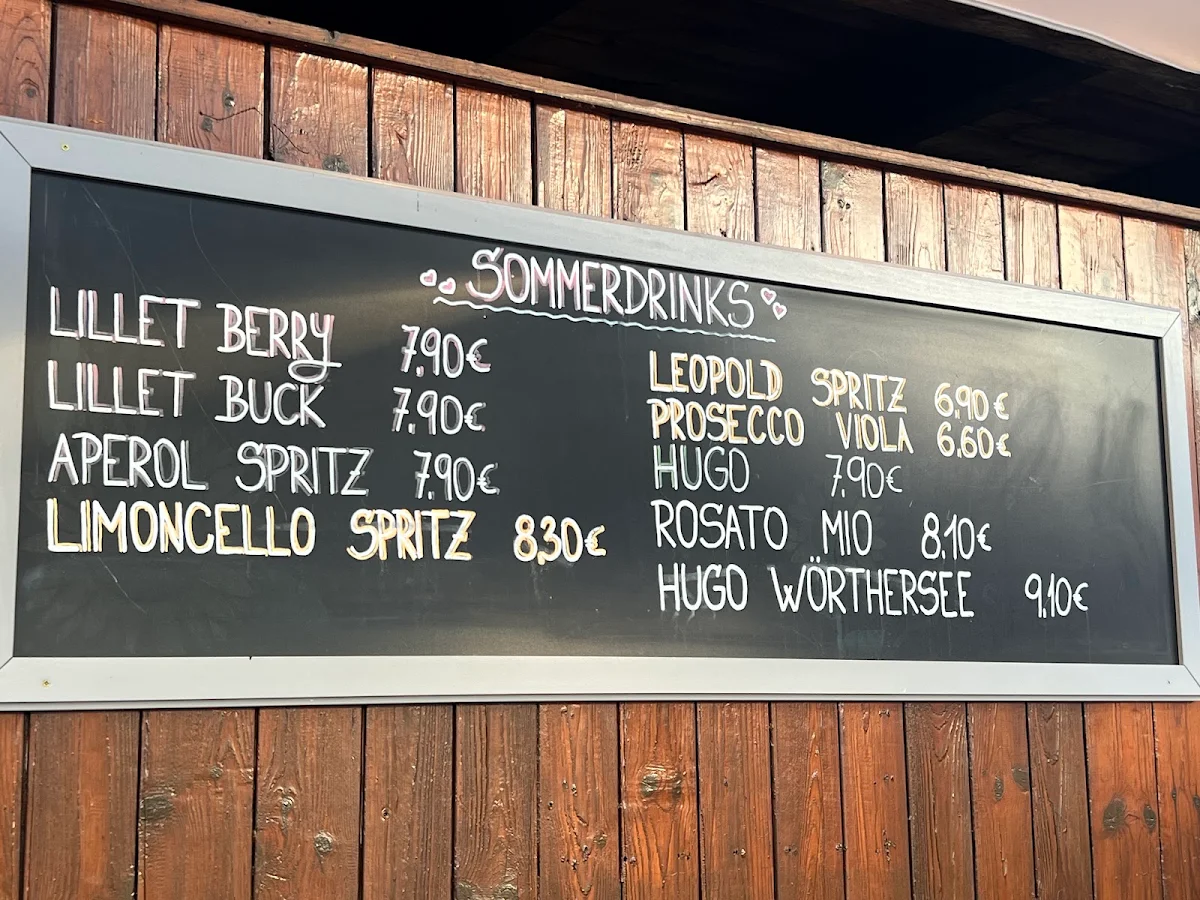 SOMMERDRINKS
LILLET BERRY 7,90€
LILLET BUCK 7,90€
APEROL SPRITZ 7,90€
LIMONCELLO SPRITZ 8,30€
LEOPOLD SPRITZ 6,90€
PROSECCO VIOLA 6,60€
HUGO 7,90€
ROSATO MIO 8,10€
HUGO WÖRTHERSEE 9,10€